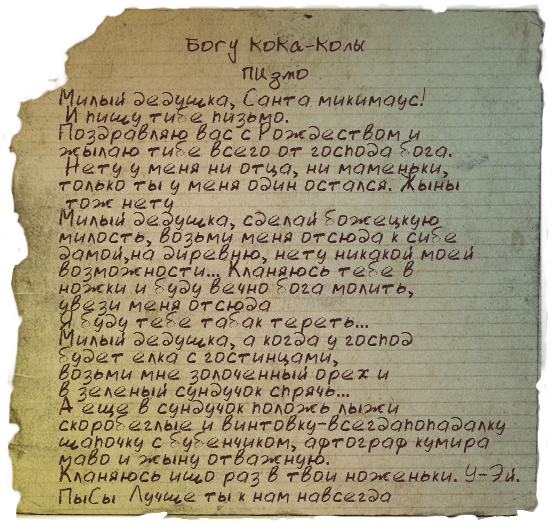 Богу кока-колы
пизмо
Милый дедушка, Санта микимаус!
И пишу тибе пизьмо.
Поздравляю вас с Рождеством и
жылаю тибе всего от господа бога.
Нету у меня ни отца, ни маменьки,
только ты у меня один остался. Жыны
тож нету
Милый дедушка, сделай божецкую
милость, возьми меня отсюда к сибе
дамой,на диревню, нету никакой моей
возможности... Кланяюсь тебе в
ножки и буду вечно бога молить,
увези меня отсюда
Я буду тебе табак тереть...
Милый дедушка, а когда у господ
будет елка с гостинцами,
возьми мне золоченный орех и
в зеленый сундучок спрячь...
А еще в сундучок положь лыжи
скоробеглые и винтовку-всегдапопадалку
шапочку с бубенчиком, афтограф кумира
маво и жыну отважную.
Кланяюсь ишо раз в твои ноженьки. У-Эй.
ПыСы Лучше ты к нам навсегда